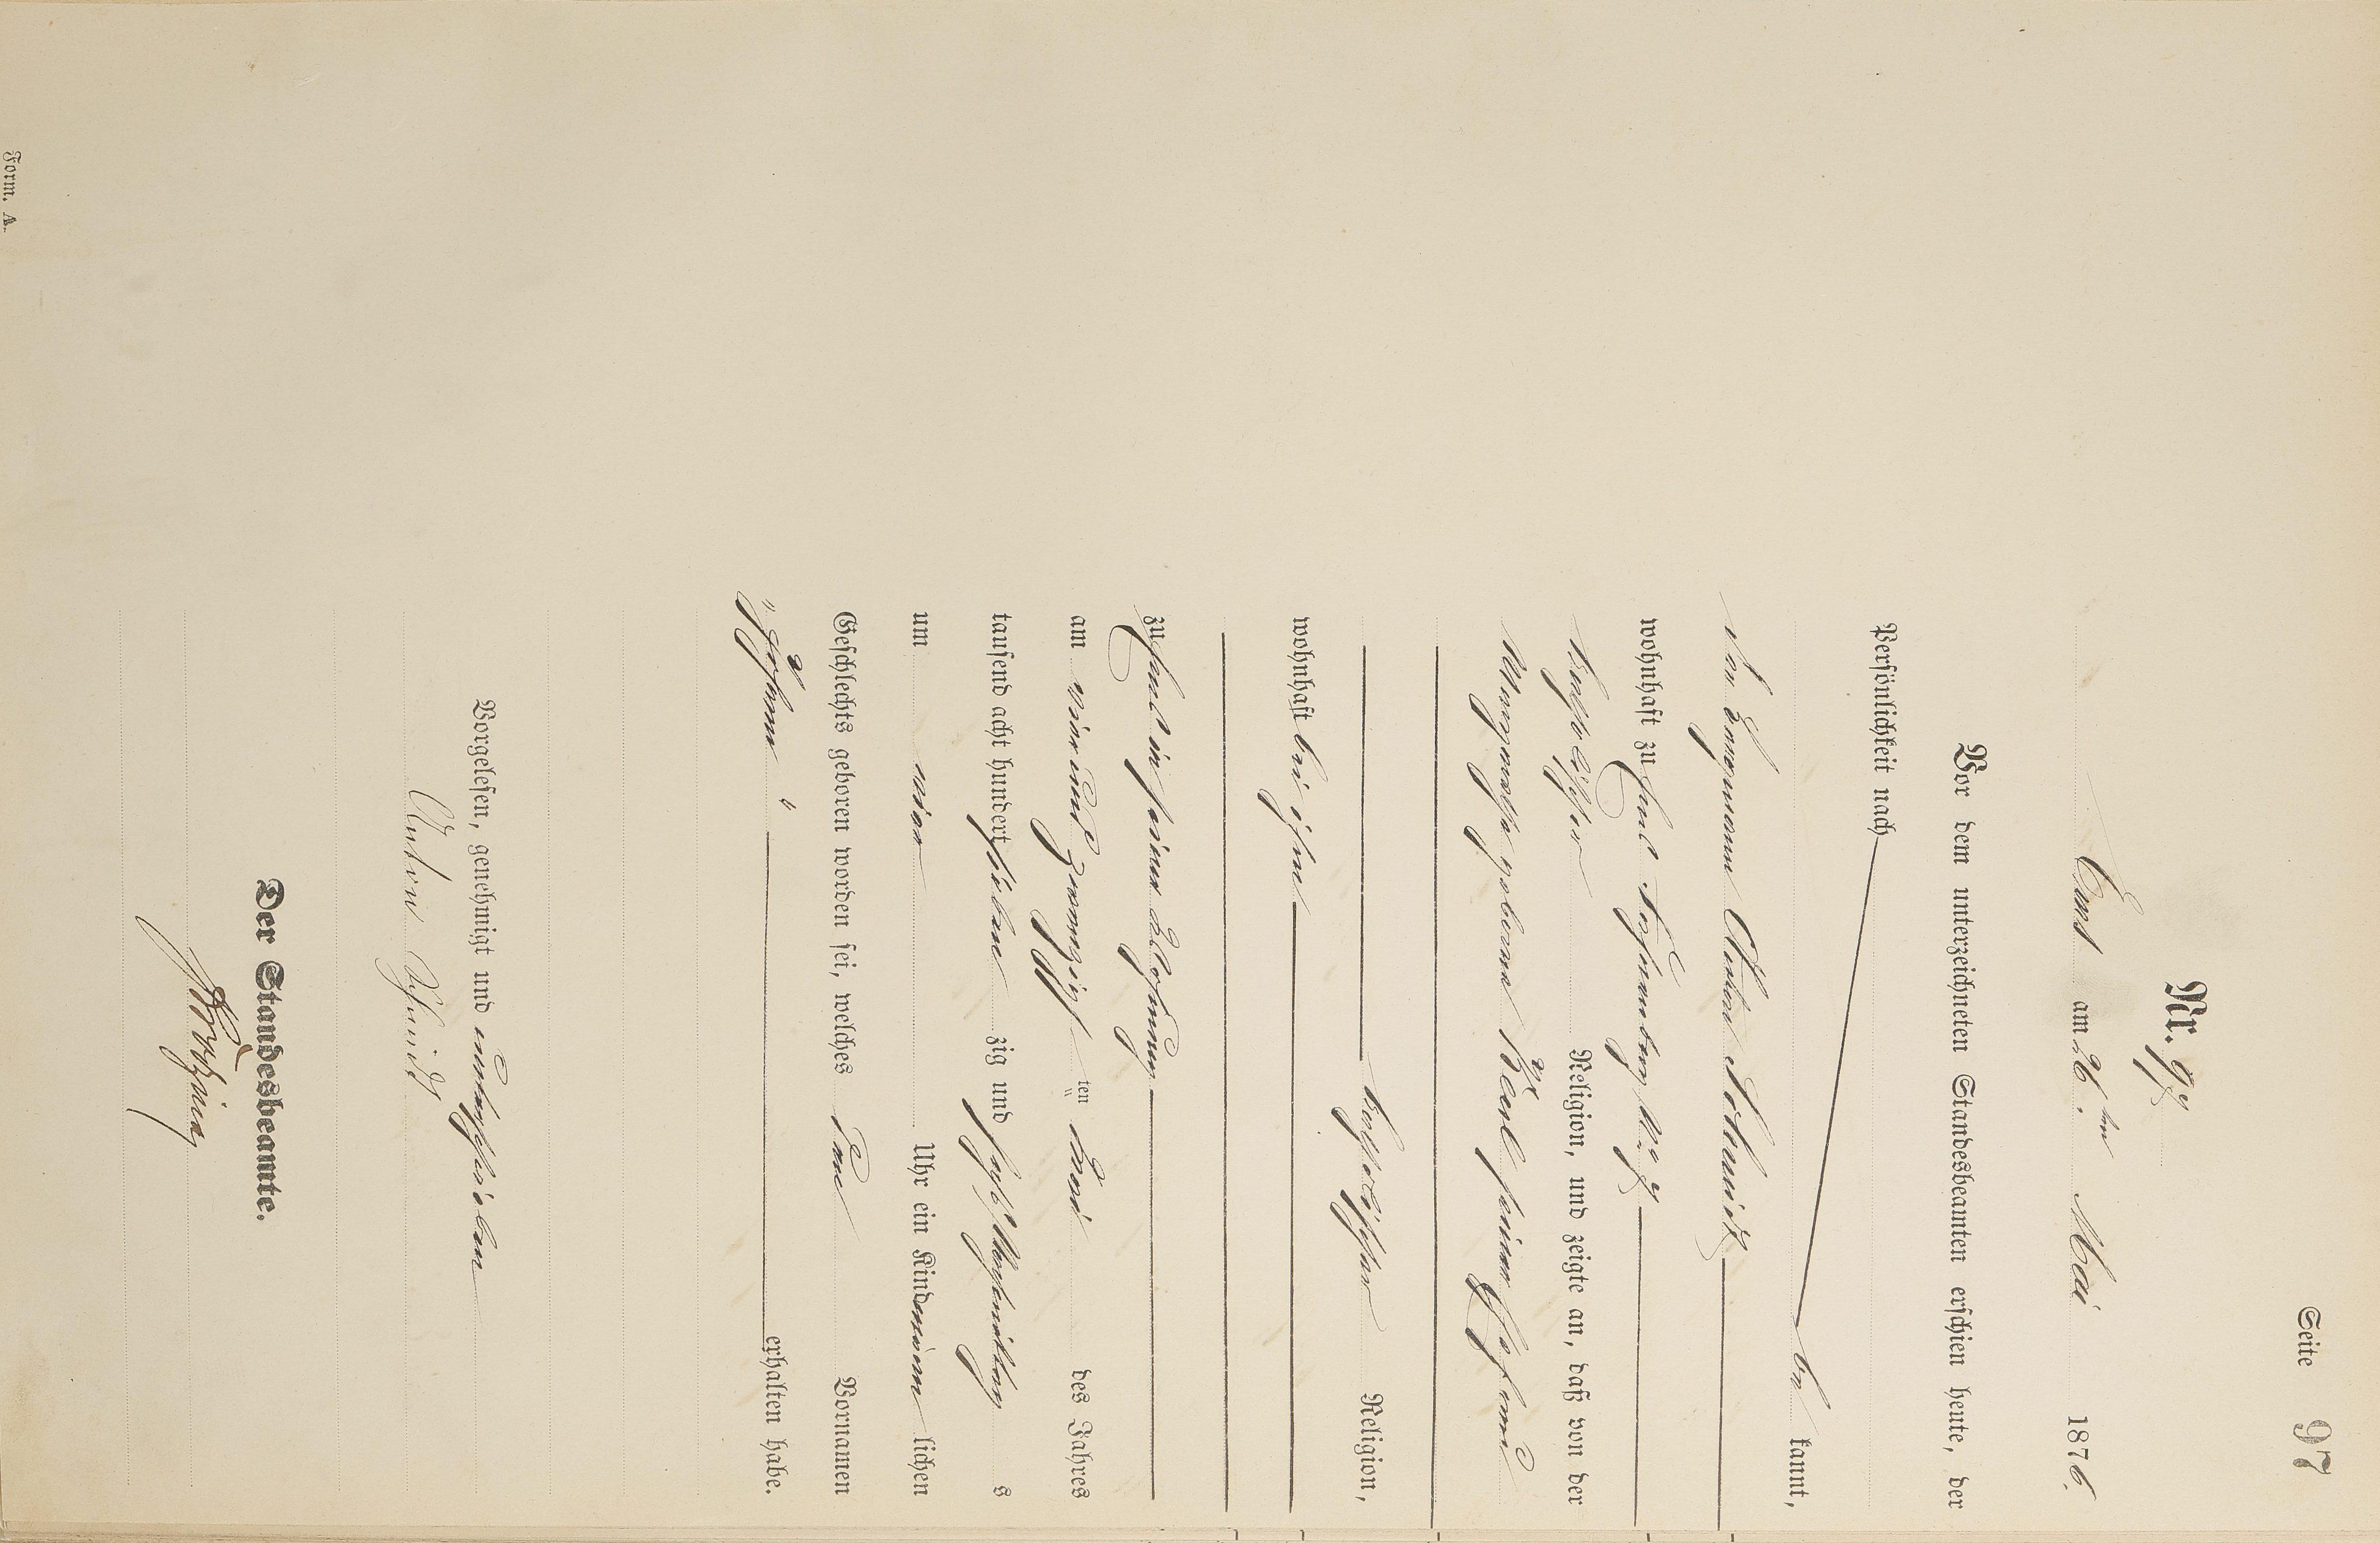 Seite 97
Nr. 97
Ems am 26.ten Mai 1876.
Vor dem unterzeichneten Standesbeamten erschien heute, der
Persönlichkeit nach
be kannt,
der Anton Schmidt
wohnhaft zu Ems
katholischer Religion, und zeigte an, daß von der
geborene seiner Ehefrau
katholischer Religion,
wohnhaft bei ihm
zu Ems in seiner Wohnung
am vier und zwanzigs ten Mai des Jahres
tausend acht hundert sieben zig und sechs Nachmittags
um vier Uhr ein Kind männ lichen
Geschlechts geboren worden sei, welches den Vornamen
"Johann" erhalten habe.
Vorgelesen, genehmigt und unterschrieben
Anton Schmidt
Der Standesbeamte.
Form. A.